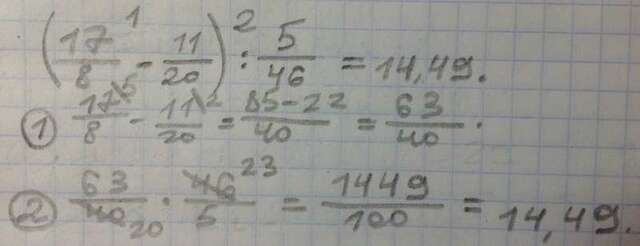 (17/8 -¹ 11/20) :² 5/46 = 14,49.
① 17\5/8 - 11\2/20 = 85-22/40 = 63/40.
② 63/40 20 · 46 23/5 = 1449/100 = 14,49.